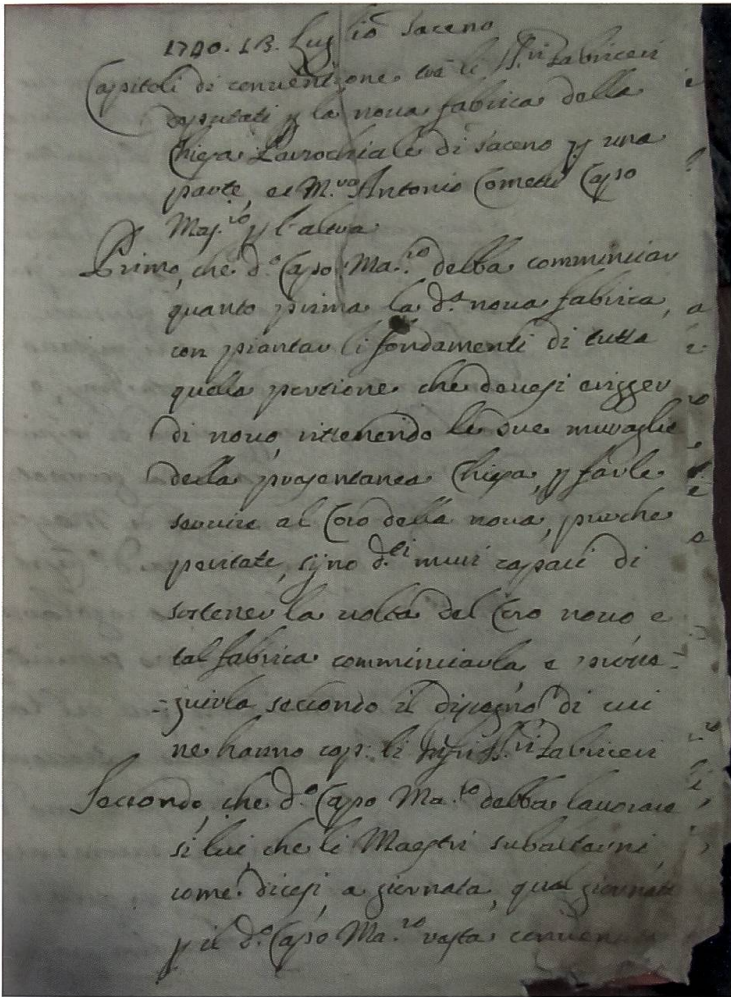 1740. 13. Luglio Saceno
Capitoli di conventione tra li SS.ri Fabriceri
deputati p la nova fabrica della
Chiesa Parochiale di Saceno p una
parte, et M.ro Antonio Cometti Capo
Maj.ro p l'altra
Primo, che d.o Capo Ma.ro debba comminciar
quanto prima la d.a nova fabrica,
con piantar li fondamenti di tutta
quela portione che devesi erigger
di novo, ritenendo le due muraglie
della presentanea Chiesa, p farle
servire al Coro della nova, purche
peritate, sijno d.ti muri capaci di
sostener la volta del Coro novo e
tal fabrica comminciarla e prose-
-guirla secondo il disegno di cui
ne hanno cop: li SS.ri Fabriceri
Secondo, che d.o Capo Ma.ro debba lavorare
si lui, che li Maestri subalterni,
come dicesi a giornata, qual giornata
p il d.o Capo Ma.ro resta